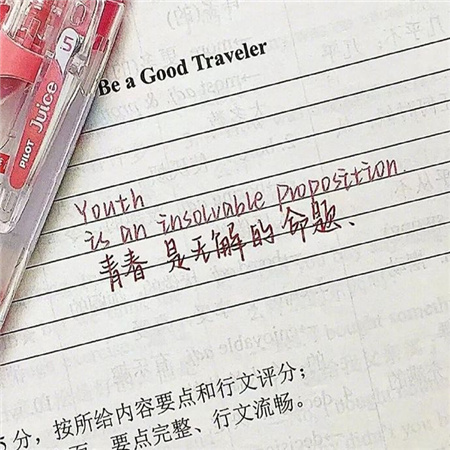 Be a Good Traveler
PILOT Juice 05
Youth
is an insolvable proposition.
青春是无解的命题、
5分，按所给内容要点和行文评分；
要点完整、行文流畅。